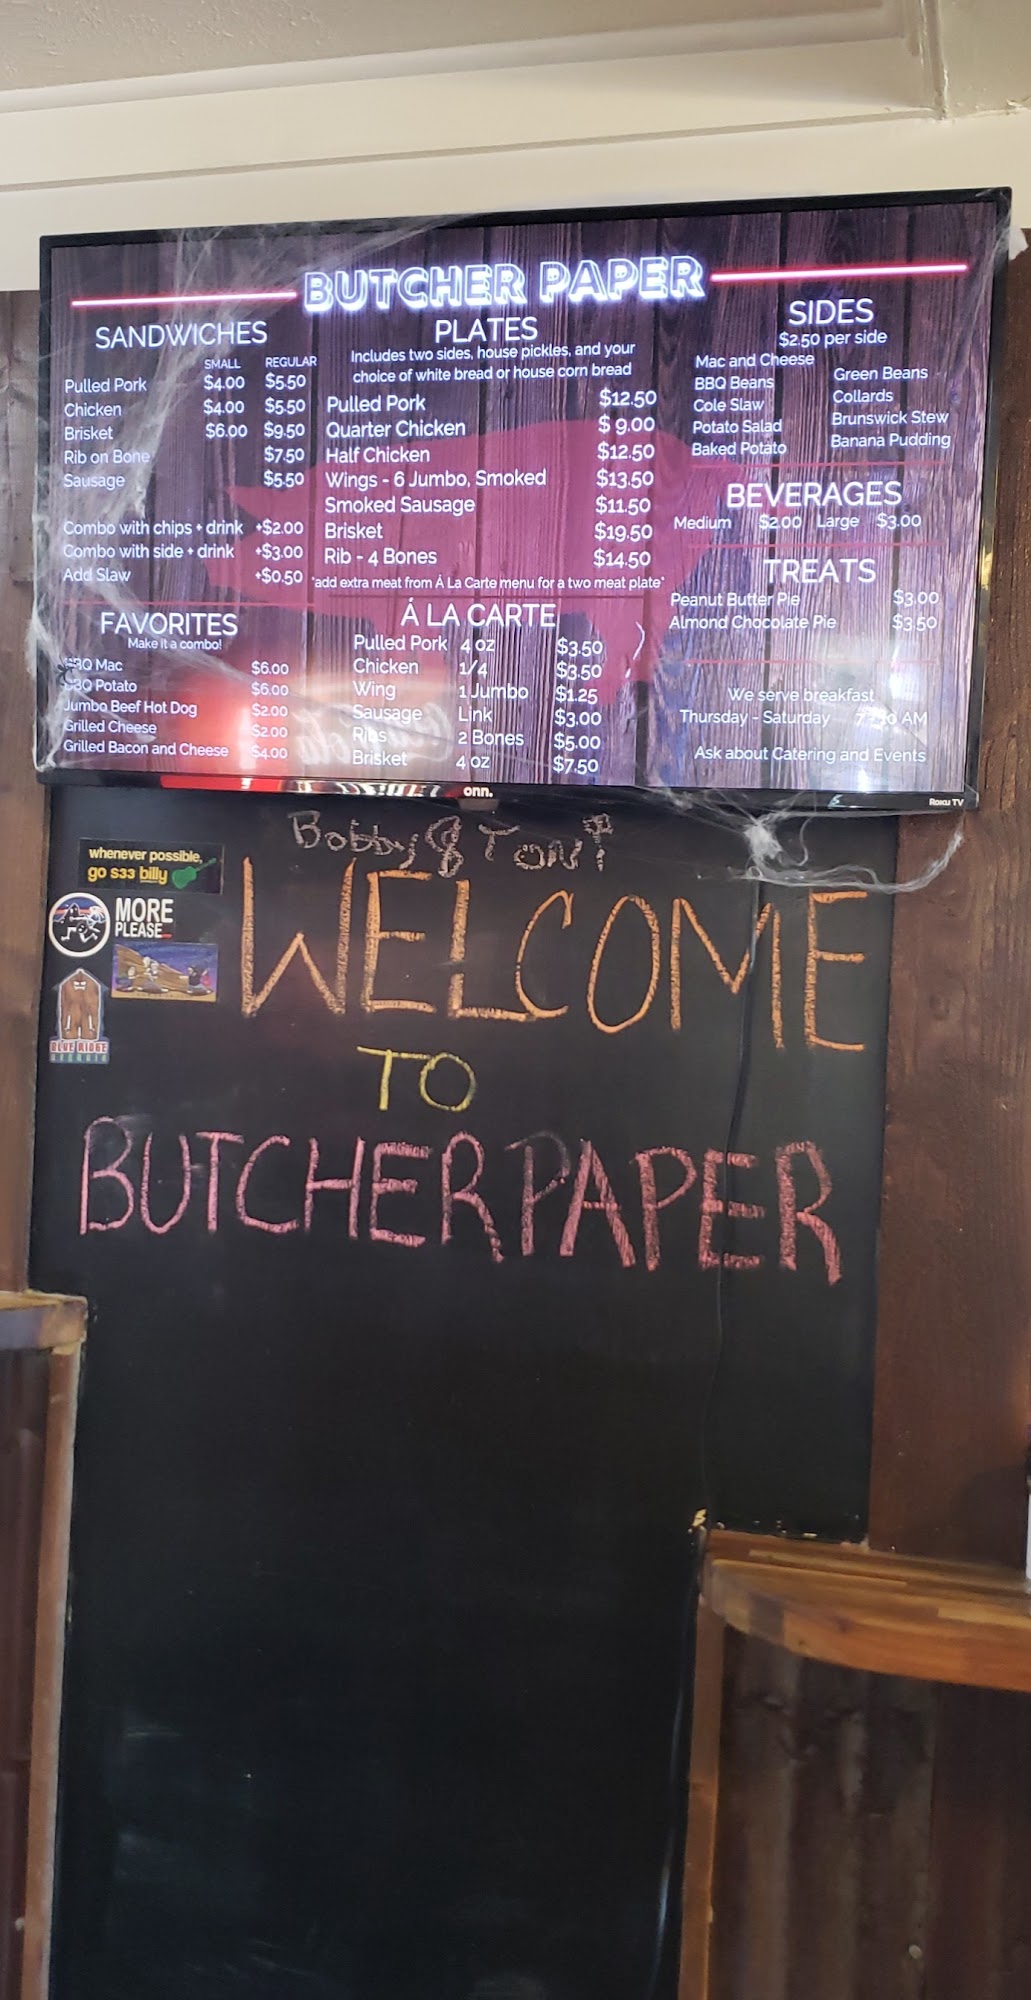 BUTCHER PAPER
SANDWICHES
SMALL REGULAR
Pulled Pork $4.00 $5.50
Chicken $4.00 $5.50
Brisket $6.00 $9.50
Rib on Bone $7.50
Sausage $5.50
Combo with chips + drink +$2.00
Combo with side + drink +$3.00
Add Slaw +$0.50
FAVORITES
Make it a combo!
BBQ Mac $6.00
BBQ Potato $6.00
Jumbo Beef Hot Dog $2.00
Grilled Cheese $2.00
Grilled Bacon and Cheese $4.00
PLATES
Includes two sides, house pickles, and your
choice of white bread or house corn bread
Pulled Pork $12.50
Quarter Chicken $ 9.00
Half Chicken $12.50
Wings - 6 Jumbo, Smoked $13.50
Smoked Sausage $11.50
Brisket $19.50
Rib - 4 Bones $14.50
*add extra meat from Á La Carte menu for a two meat plate*
Á LA CARTE
Pulled Pork 4 oz $3.50
Chicken 1/4 $3.50
Wing 1 Jumbo $1.25
Sausage Link $3.00
Ribs 2 Bones $5.00
Brisket 4 oz $7.50
SIDES
$2.50 per side
Mac and Cheese
BBQ Beans
Cole Slaw
Potato Salad
Baked Potato
Green Beans
Collards
Brunswick Stew
Banana Pudding
BEVERAGES
Medium $2.00 Large $3.00
TREATS
Peanut Butter Pie $3.00
Almond Chocolate Pie $3.50
We serve breakfast
Thursday - Saturday AM
Ask about Catering and Events
onn.
Roku TV
Bobby & Toni
whenever possible,
go s33 billy
MORE
PLEASE...
BLUE RIDGE
GEORGIA
WELCOME
TO
BUTCHER PAPER